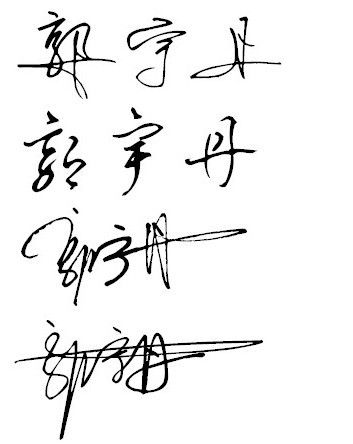 郭宇丹
郭宇丹
郭宇丹
郭宇丹